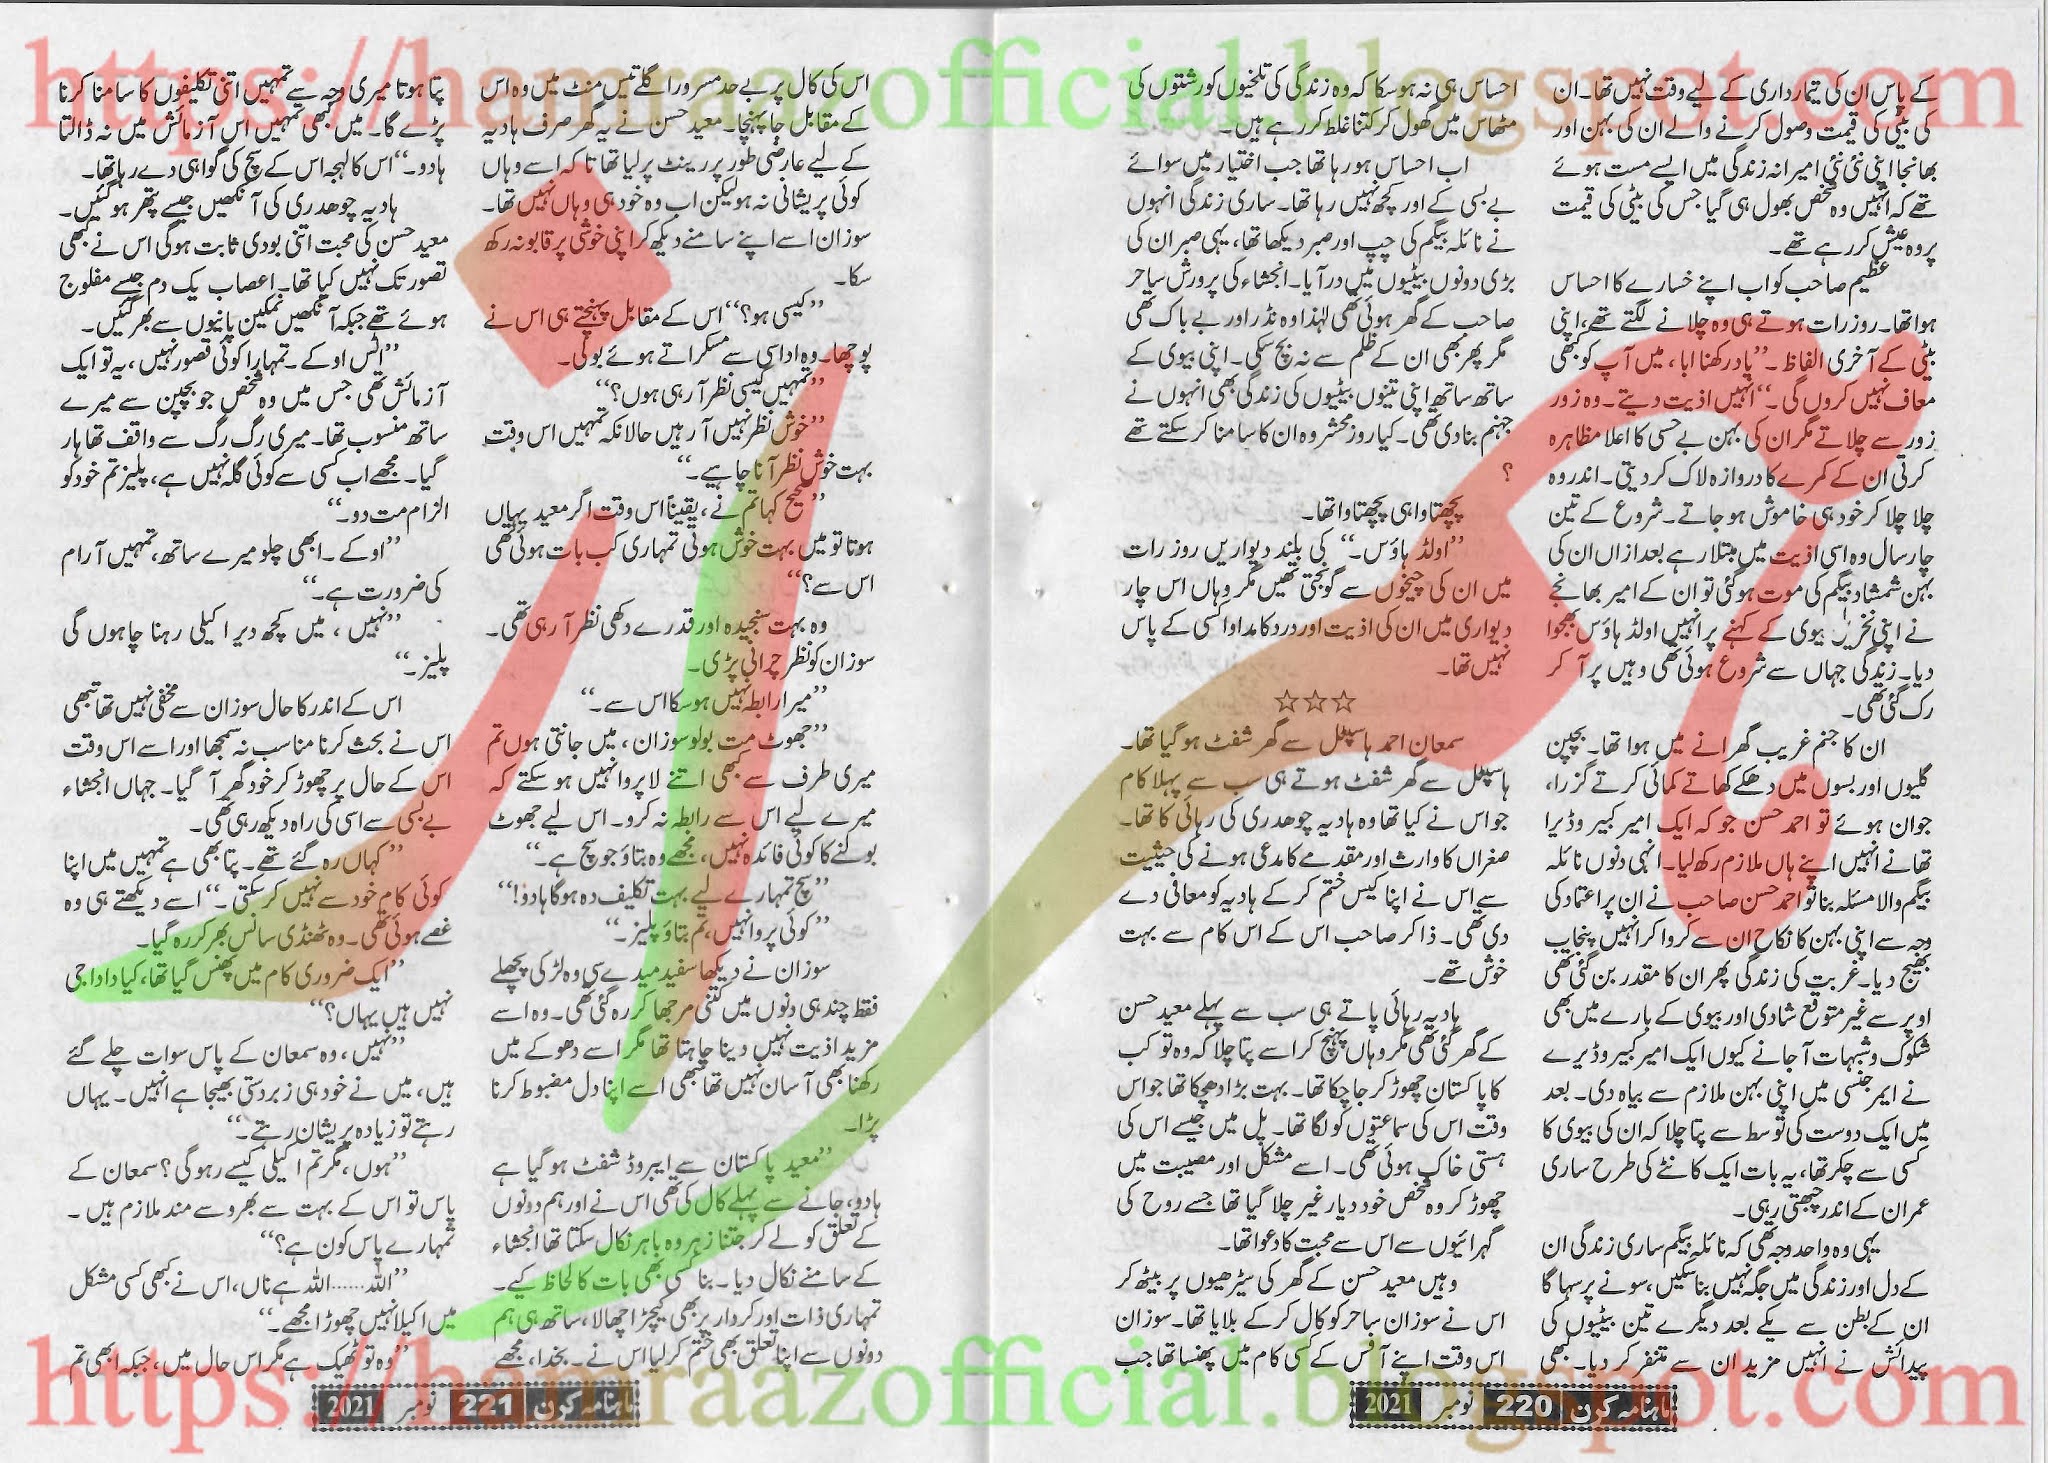 https://hamraazofficial.blogspot.com
کے پاس ان کی تیمارداری کے لیے وقت نہیں تھا۔ ان
کی بیٹی کی قیمت وصول کرنے والے ان کی بہن اور
بھانجا اپنی نئی نئی امیرانہ زندگی میں ایسے مست ہوئے
تھے کہ انہیں وہ شخص بھول ہی گیا جس کی بیٹی کی قیمت
پر وہ عیش کر رہے تھے۔
عظیم صاحب کو اب اپنے خسارے کا احساس
ہوا تھا۔ روز رات ہوتے ہی وہ چلانے لگتے تھے، اپنی
بیٹی کے آخری الفاظ۔ ’’یاد رکھنا ابا، میں آپ کو کبھی
معاف نہیں کروں گی۔‘‘ انہیں اذیت دیتے۔ وہ زور
زور سے چلاتے مگر ان کی بہن بے حسی کا اعلا مظاہرہ
کرتی ان کے کمرے کا دروازہ لاک کر دیتی۔ اندر وہ
چلا چلا کر خود ہی خاموش ہو جاتے۔ شروع کے تین
چار سال وہ اسی اذیت میں مبتلا رہے بعد ازاں ان کی
بہن شمشاد بیگم کی موت ہو گئی تو ان کے امیر بھانجے
نے اپنی نخریلی بیوی کے کہنے پر انہیں اولڈ ہاؤس بھجوا
دیا۔ زندگی جہاں سے شروع ہوئی تھی وہیں پر آ کر
رک گئی تھی۔
ان کا جنم غریب گھرانے میں ہوا تھا۔ بچپن
گلیوں اور بسوں میں دھکے کھاتے کمائی کرتے گزرا،
جوان ہوئے تو احمد حسن جو کہ ایک امیر کبیر وڈیرا
تھا نے انہیں اپنے ہاں ملازم رکھ لیا۔ انہی دنوں نائلہ
بیگم والا مسئلہ بنا تو احمد حسن صاحب نے ان پر اعتماد کی
وجہ سے اپنی بہن کا نکاح ان سے کروا کر انہیں پنجاب
بھیج دیا۔ غربت کی زندگی پھر ان کا مقدر بن گئی تھی
اوپر سے غیر متوقع شادی اور بیوی کے بارے میں بھی
شکوک و شبہات آ جانے کیوں ایک امیر کبیر وڈیرے
نے ایمرجنسی میں اپنی بہن ملازم سے بیاہ دی۔ بعد
میں ایک دوست کی توسط سے پتا چلا کہ ان کی بیوی کا
کسی سے چکر تھا، یہ بات ایک کانٹے کی طرح ساری
عمر ان کے اندر چبھتی رہی۔
یہی وہ واحد وجہ تھی کہ نائلہ بیگم ساری زندگی ان
کے دل اور زندگی میں جگہ نہیں بنا سکیں، سونے پر سہاگا
ان کے بطن سے یکے بعد دیگرے تین بیٹیوں کی
پیدائش نے انہیں مزید ان سے متنفر کر دیا۔ کبھی
احساس ہی نہ ہو سکا کہ وہ زندگی کی تلخیوں کو رشتوں کی
مٹھاس میں گھول کر کتنا غلط کر رہے ہیں۔
اب احساس ہو رہا تھا جب اختیار میں سوائے
بے بسی کے اور کچھ نہیں رہا تھا۔ ساری زندگی انہوں
نے نائلہ بیگم کی چپ اور صبر دیکھا تھا، یہی صبر ان کی
بڑی دونوں بیٹیوں میں در آیا۔ انجشاء کی پرورش ساحر
صاحب کے گھر ہوئی تھی لہذا وہ نڈر اور بے باک تھی
مگر پھر بھی ان کے ظلم سے نہ بچ سکی۔ اپنی بیوی کے
ساتھ ساتھ اپنی تینوں بیٹیوں کی زندگی بھی انہوں نے
جہنم بنا دی تھی۔ کیا روز محشر وہ ان کا سامنا کر سکتے تھے
؟
پچھتاوا ہی پچھتاوا تھا۔
’’اولڈ ہاؤس۔‘‘ کی بلند دیواریں روز رات
میں ان کی چیخوں سے گونجتی تھیں مگر وہاں اس چار
دیواری میں ان کی اذیت اور درد کا مداوا کسی کے پاس
نہیں تھا۔
☆☆☆
سمعان احمد ہاسپٹل سے گھر شفٹ ہو گیا تھا۔
ہاسپٹل سے گھر شفٹ ہوتے ہی سب سے پہلا کام
جو اس نے کیا تھا وہ ہادیہ چوھدری کی رہائی کا تھا۔
صغراں کا وارث اور مقدمے کا مدعی ہونے کی حیثیت
سے اس نے اپنا کیس ختم کر کے ہادیہ کو معافی دے
دی تھی۔ ذاکر صاحب اس کے اس کام سے بہت
خوش تھے۔
ہادیہ رہائی پاتے ہی سب سے پہلے معید حسن
کے گھر گئی تھی مگر وہاں پہنچ کر اسے پتا چلا کہ وہ تو کب
کا پاکستان چھوڑ کر جا چکا تھا۔ بہت بڑا دھچکا تھا جو اس
وقت اس کی سماعتوں کو لگا تھا۔ پل میں جیسے اس کی
ہستی خاک ہوئی تھی۔ اسے مشکل اور مصیبت میں
چھوڑ کر وہ شخص خود دیار غیر چلا گیا تھا جسے روح کی
گہرائیوں سے اس سے محبت کا دعوا تھا۔
وہیں معید حسن کے گھر کی سیڑھیوں پر بیٹھ کر
اس نے سوزان ساحر کو کال کر کے بلایا تھا۔ سوزان
اس وقت اپنے آفس کے کسی کام میں پھنسا تھا جب
ماہنامہ کرن 220 نومبر 2021
اس کی کال پر بے حد مسرور اگلے تیس منٹ میں وہ اس
کے مقابل جا پہنچا۔ معید حسن نے یہ گھر صرف ہادیہ
کے لیے عارضی طور پر رینٹ پر لیا تھا تا کہ اسے وہاں
کوئی پریشانی نہ ہو لیکن اب وہ خود ہی وہاں نہیں تھا۔
سوزان اسے اپنے سامنے دیکھ کر اپنی خوشی پر قابو نہ رکھ
سکا۔
’’کیسی ہو؟‘‘ اس کے مقابل پہنچتے ہی اس نے
پوچھا۔ وہ اداسی سے مسکراتے ہوئے بولی۔
’’تمہیں کیسی نظر آ رہی ہوں؟‘‘
’’خوش نظر نہیں آ رہیں حالانکہ تمہیں اس وقت
بہت خوش نظر آنا چاہیے۔‘‘
’’صحیح کہا تم نے، یقیناً اس وقت اگر معید یہاں
ہوتا تو میں بہت خوش ہوتی تمہاری کب بات ہوئی تھی
اس سے؟‘‘
وہ بہت سنجیدہ اور قدرے دکھی نظر آ رہی تھی۔
سوزان کو نظر چرانی پڑی۔
’’میرا رابطہ نہیں ہو سکا اس سے۔‘‘
’’جھوٹ مت بولو سوزان، میں جانتی ہوں تم
میری طرف سے کبھی اتنے لاپروا نہیں ہو سکتے کہ
میرے لیے اس سے رابطہ نہ کرو۔ اس لیے جھوٹ
بولنے کا کوئی فائدہ نہیں، مجھے وہ بتاؤ جو سچ ہے۔‘‘
’’سچ تمہارے لیے بہت تکلیف دہ ہو گا ہادو!‘‘
’’کوئی پروا نہیں، تم بتاؤ پلیز۔‘‘
سوزان نے دیکھا سفید میدے سی وہ لڑکی پچھلے
فقط چند ہی دنوں میں کتنی مرجھا کر رہ گئی تھی۔ وہ اسے
مزید اذیت نہیں دینا چاہتا تھا مگر اسے دھوکے میں
رکھنا بھی آسان نہیں تھا تبھی اسے اپنا دل مضبوط کرنا
پڑا۔
’’معید پاکستان سے ایبروڈ شفٹ ہو گیا ہے
ہادو، جانے سے پہلے کال کی تھی اس نے اور ہم دونوں
کے تعلق کو لے کر جتنا زہر وہ باہر نکال سکتا تھا انجشاء
کے سامنے نکال دیا۔ بنا کسی بھی بات کا لحاظ کیے۔
تمہاری ذات اور کردار پر بھی کیچڑ اچھالا، ساتھ ہی ہم
دونوں سے اپنا تعلق بھی ختم کر لیا اس نے۔ بخدا، مجھے
پتا ہوتا میری وجہ سے تمہیں اتنی تکلیفوں کا سامنا کرنا
پڑے گا۔ میں کبھی تمہیں اس آزمائش میں نہ ڈالتا
ہادو۔‘‘ اس کا لہجہ اس کے سچ کی گواہی دے رہا تھا۔
ہادیہ چوھدری کی آنکھیں جیسے پتھر ہو گئیں۔
معید حسن کی محبت اتنی بودی ثابت ہو گی اس نے کبھی
تصور تک نہیں کیا تھا۔ اعصاب یک دم جیسے مفلوج
ہوئے تھے جبکہ آنکھیں نمکین پانیوں سے بھر گئیں۔
’’اٹس اوکے۔ تمہارا کوئی قصور نہیں، یہ تو ایک
آزمائش تھی جس میں وہ شخص جو بچپن سے میرے
ساتھ منسوب تھا۔ میری رگ رگ سے واقف تھا ہار
گیا۔ مجھے اب کسی سے کوئی گلہ نہیں ہے، پلیز تم خود کو
الزام مت دو۔‘‘
’’اوکے۔ ابھی چلو میرے ساتھ، تمہیں آرام
کی ضرورت ہے۔‘‘
’’نہیں، میں کچھ دیر اکیلی رہنا چاہوں گی
پلیز۔‘‘
اس کے اندر کا حال سوزان سے مخفی نہیں تھا تبھی
اس نے بحث کرنا مناسب نہ سمجھا اور اسے اس وقت
اس کے حال پر چھوڑ کر خود گھر آ گیا۔ جہاں انجشاء
بے بسی سے اسی کی راہ دیکھ رہی تھی۔
’’کہاں رہ گئے تھے۔ پتا بھی ہے تمہیں میں اپنا
کوئی کام خود سے نہیں کر سکتی۔‘‘ اسے دیکھتے ہی وہ
غصے ہوئی تھی۔ وہ ٹھنڈی سانس بھر کر رہ گیا۔
’’ایک ضروری کام میں پھنس گیا تھا، کیا دادا جی
نہیں ہیں یہاں؟‘‘
’’نہیں، وہ سمعان کے پاس سوات چلے گئے
ہیں، میں نے خود ہی زبردستی بھیجا ہے انہیں۔ یہاں
رہتے تو زیادہ پریشان رہتے۔‘‘
’’ہوں، مگر تم اکیلی کیسے رہو گی؟ سمعان کے
پاس تو اس کے بہت سے بھروسے مند ملازم ہیں۔
تمہارے پاس کون ہے؟‘‘
’’اللہ ...... اللہ ہے ناں، اس نے کبھی کسی مشکل
میں اکیلا نہیں چھوڑا مجھے۔‘‘
’’وہ تو ٹھیک ہے مگر اس حال میں، جبکہ ابھی تم
ماہنامہ کرن 221 نومبر 2021
https://hamraazofficial.blogspot.com
ہمراز